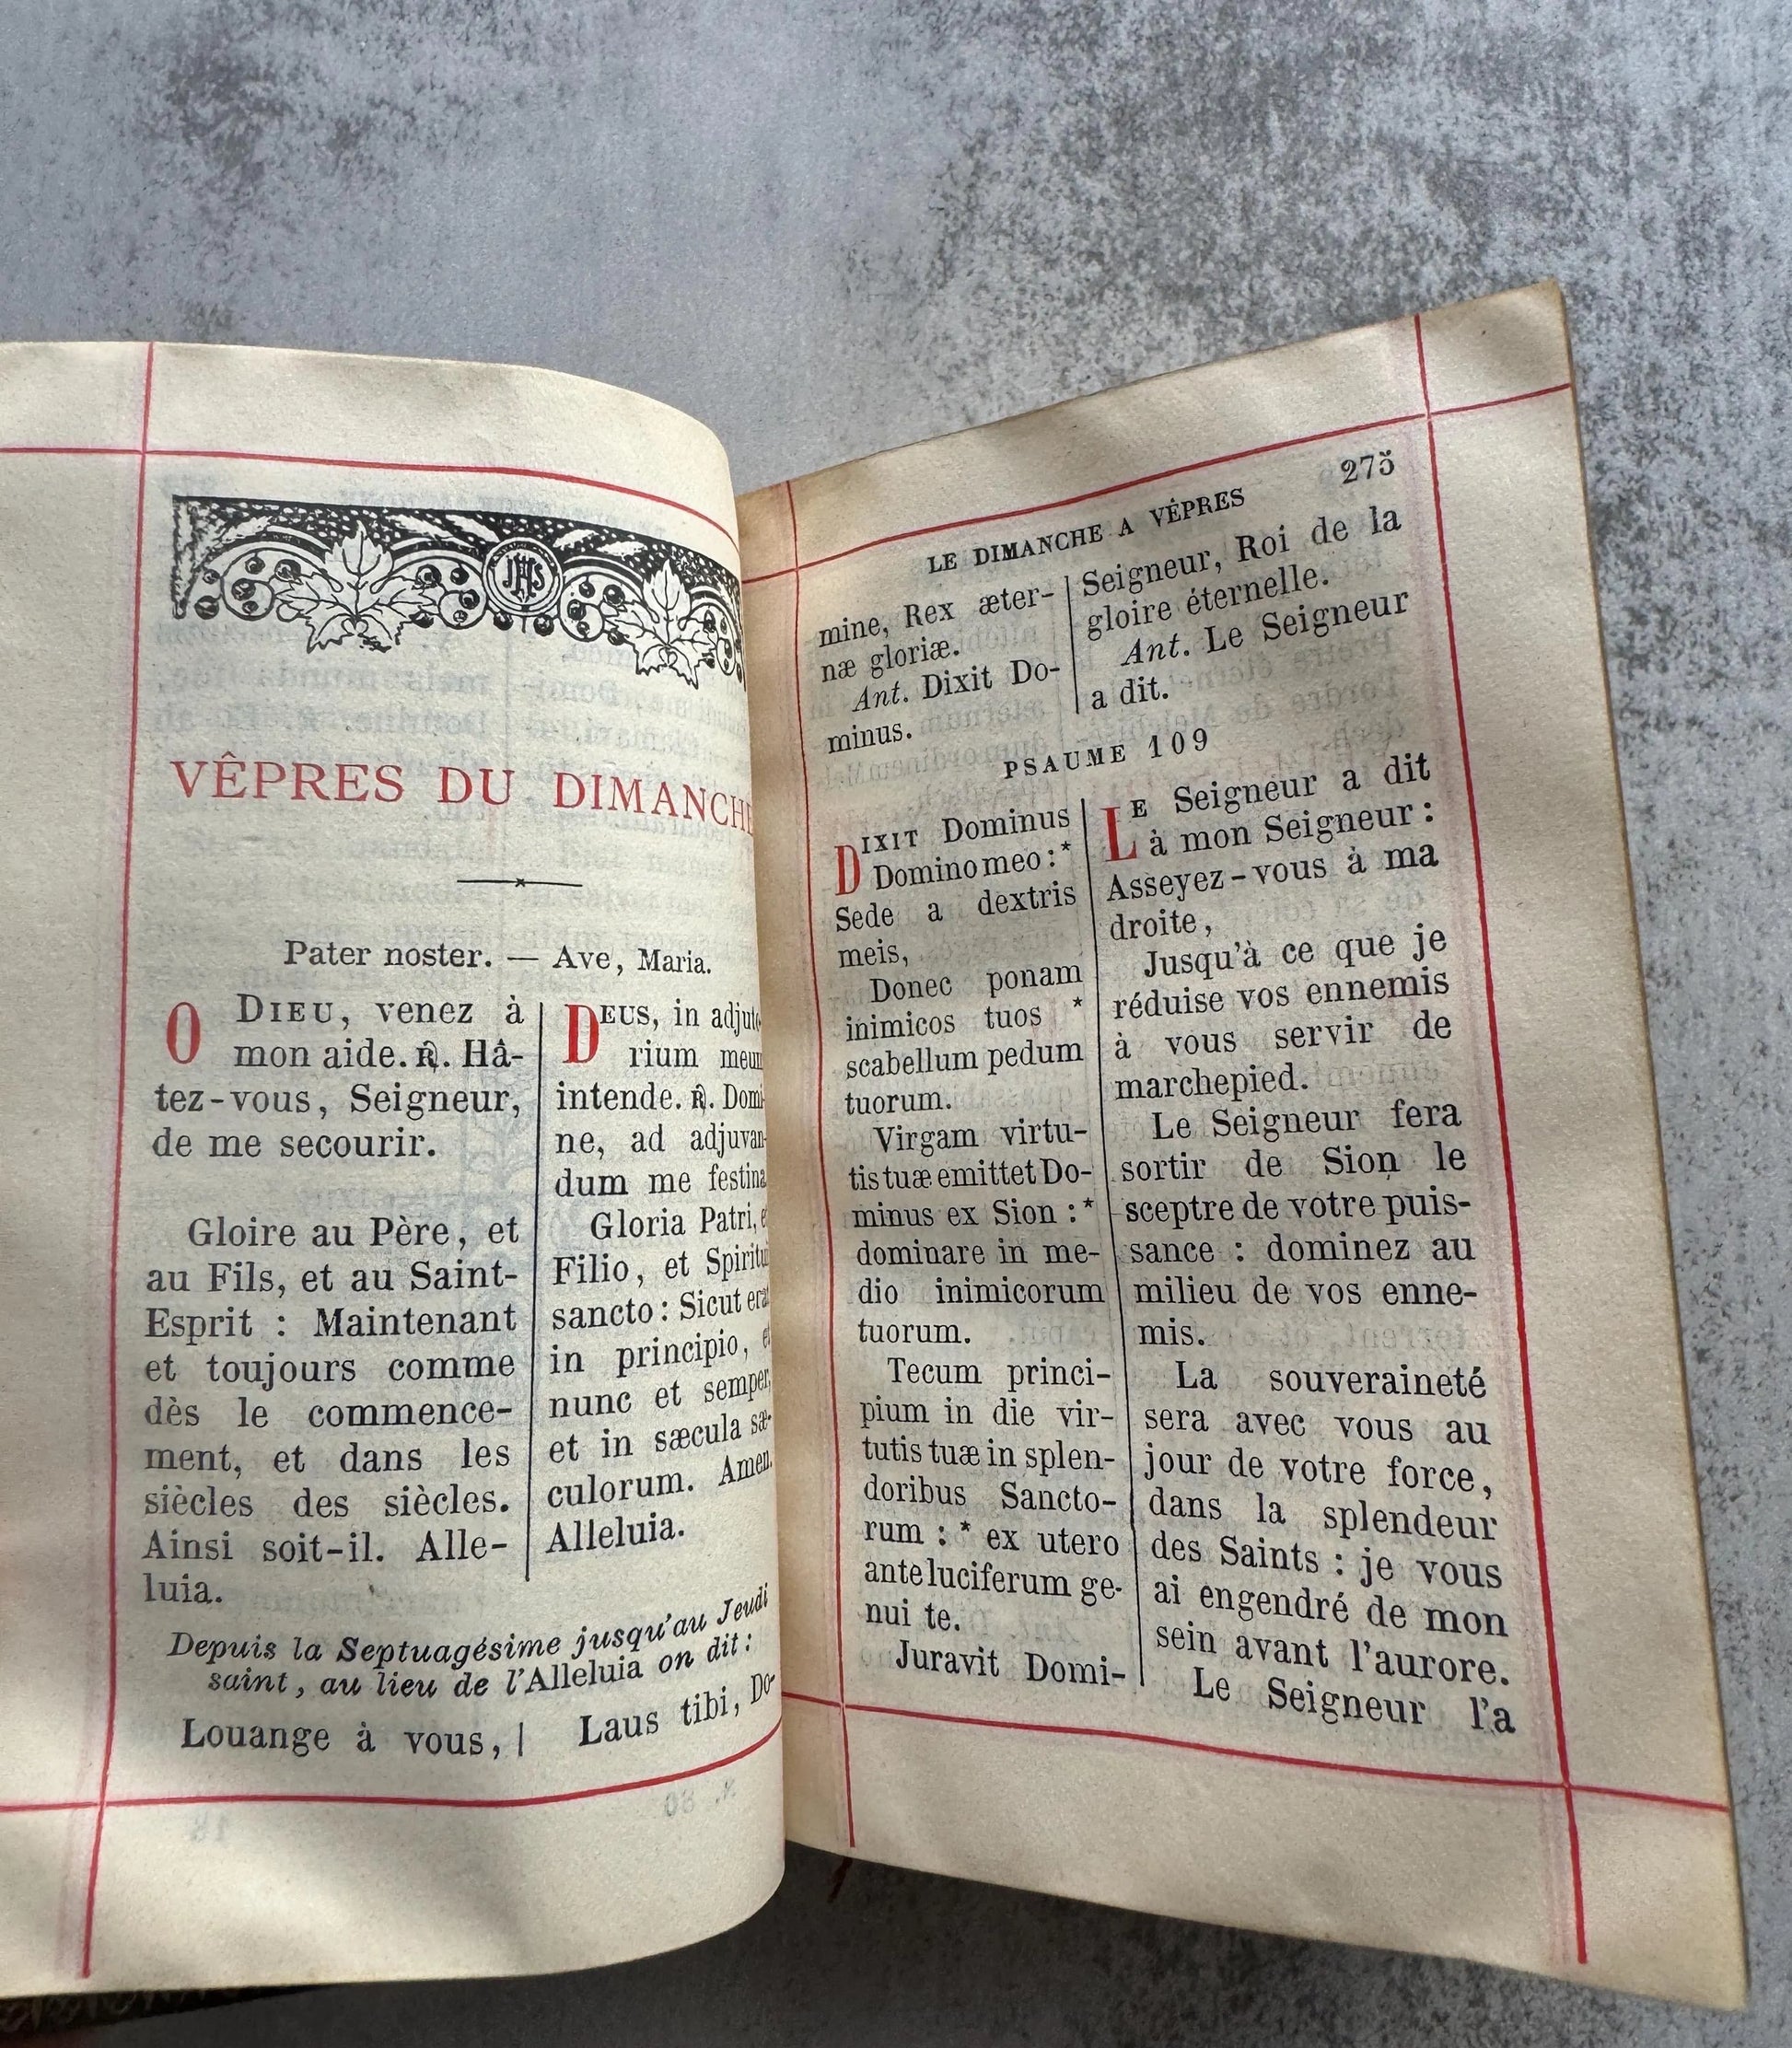 IHS
VÊPRES DU DIMANCHE
Pater noster. — Ave, Maria.
O DIEU, venez à
mon aide. ℟. Hâ-
tez-vous, Seigneur,
de me secourir.
Gloire au Père, et
au Fils, et au Saint-
Esprit : Maintenant
et toujours comme
dès le commence-
ment, et dans les
siècles des siècles.
Ainsi soit-il. Alle-
luia.
DEUS, in adjuto
rium meum
intende. ℟. Domi-
ne, ad adjuvan-
dum me festina
Gloria Patri, e
Filio, et Spiritui
sancto : Sicut erat
in principio, e
nunc et semper,
et in sæcula sæ-
culorum. Amen.
Alleluia.
Depuis la Septuagésime jusqu'au Jeudi
saint, au lieu de l'Alleluia on dit :
Louange à vous,
Laus tibi, Do-
275
LE DIMANCHE A VÉPRES
mine, Rex æter-
næ gloriæ.
Ant. Dixit Do-
minus.
Seigneur, Roi de la
gloire éternelle.
Ant. Le Seigneur
a dit.
PSAUME 109
DIXIT Dominus
Domino meo : *
Sede a dextris
meis,
Donec ponam
inimicos tuos *
scabellum pedum
tuorum.
Virgam virtu-
tis tuæ emittet Do-
minus ex Sion : *
dominare in me-
dio inimicorum
tuorum.
Tecum princi-
pium in die vir-
tutis tuæ in splen-
doribus Sancto-
rum : * ex utero
ante luciferum ge-
nui te.
Juravit Domi-
LE Seigneur a dit
à mon Seigneur :
Asseyez-vous à ma
droite,
Jusqu'à ce que je
réduise vos ennemis
à vous servir de
marchepied.
Le Seigneur fera
sortir de Sion le
sceptre de votre puis-
sance : dominez au
milieu de vos enne-
mis.
La souveraineté
sera avec vous au
jour de votre force,
dans la splendeur
des Saints : je vous
ai engendré de mon
sein avant l'aurore.
Le Seigneur l'a